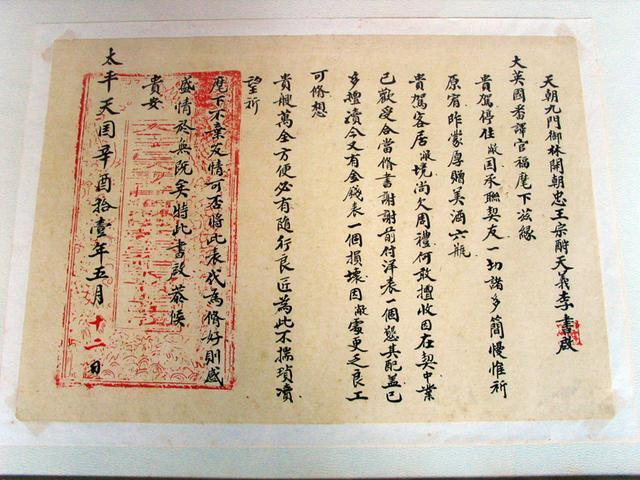 天朝九門御林開朝忠王宗爵天義李書啟
大英國番譯官福麾下茲緣
貴駕停住敝国承聯契友一切諸多簡慢惟祈
原宥昨蒙厚贈美酒六瓶
貴駕客居敝境尚欠周禮何敢擅收因在契中業
已歡受合當修書謝謝前付洋表一個懇其配蓋已
多體瀆今又有金錢表一個損壞因敝處更乏良工
可修想
貴艘萬全方便必有隨行良匠為此不揣瑣瀆
望祈
麾下不棄友情可否將此表代為修好則感
盛情於無既矣特此書啟恭候
貴安
太平天囯辛酉拾壹年五月十二日